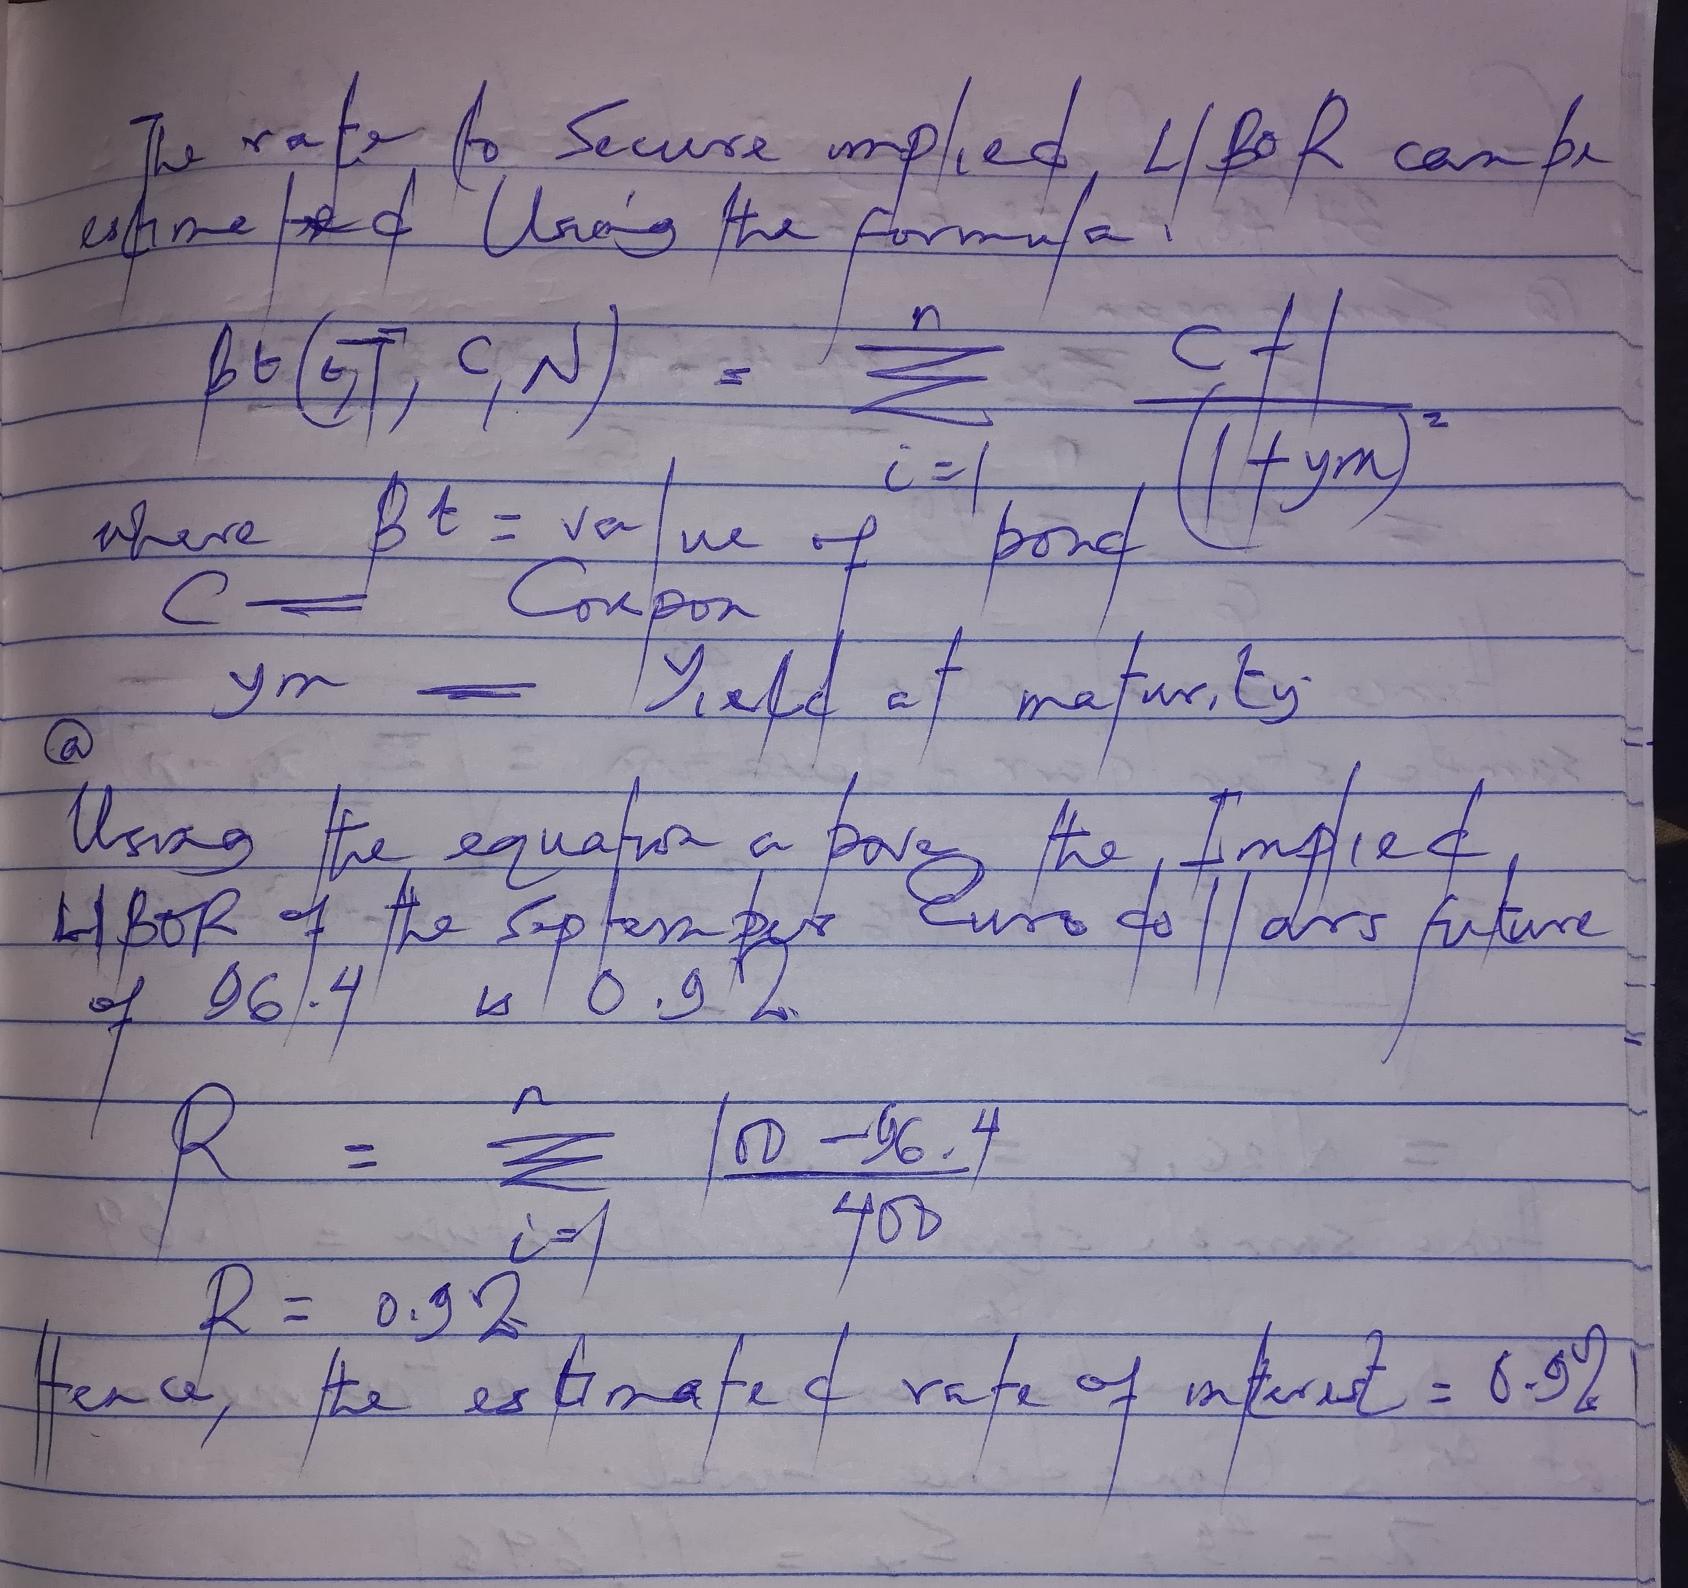 The rate to Secure implied LIBOR can be
estimated Using the formula.
Bt(t,T, C,N) = n∑i=1 C+1/(1+ym)²
where Bt = value of bond
C = Coupon
ym = Yield at maturity
(a)
Using the equation above, the Implied
LIBOR of the September Eurodollars future
of 96.4 is 0.9%
R = n∑i=1 100-96.4/400
R = 0.9%
Hence, the estimated rate of interest = 0.9%